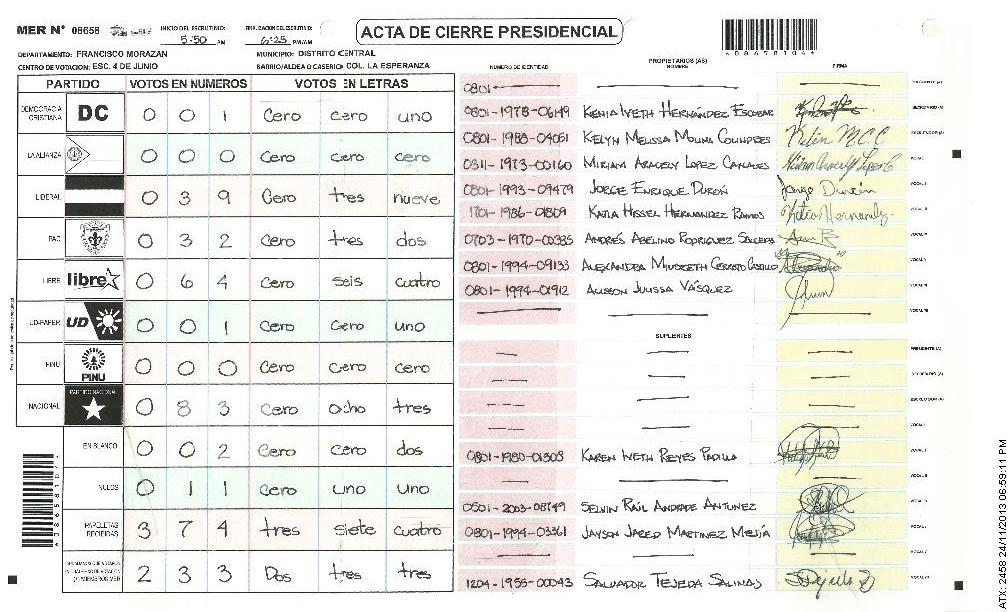 MER Nº 08658
INICIO DEL ESCRUTINIO: 5:50 PM
FINALIZACION DEL ESCRUTINIO: 6:25 PM/AM
ACTA DE CIERRE PRESIDENCIAL
DEPARTAMENTO: FRANCISCO MORAZAN
MUNICIPIO: DISTRITO CENTRAL
CENTRO DE VOTACION: ESC. 4 DE JUNIO
BARRIO/ALDEA O CASERIO: COL. LA ESPERANZA
PARTIDO VOTOS EN NUMEROS VOTOS EN LETRAS
DEMOCRACIA CRISTIANA DC 0 0 1 Cero cero uno
LA ALIANZA 0 0 0 Cero cero cero
LIBERAL 0 3 9 Cero tres nueve
PAC 0 3 2 Cero tres dos
LIBRE libre 0 6 4 Cero seis cuatro
UD-FAPER UD 0 0 1 Cero Cero uno
PINU PINU 0 0 0 Cero cero cero
NACIONAL PARTIDO NACIONAL 0 8 3 Cero Ocho tres
EN BLANCO 0 0 2 Cero cero dos
NULOS 0 1 1 Cero uno uno
PAPELETAS RECIBIDAS 3 7 4 tres siete cuatro
2 3 3 Dos tres tres
NUMERO DE IDENTIDAD
PROPIETARIOS (AS)
NOMBRE
FIRMA
0801
0801-1978-06149 KENIA IVETH HERNÁNDEZ ESCOBAR SECRETARIO (A)
0801-1988-04061 KELYN MELISSA ESCRUTADOR (A)
0311-1973-00160 MIRIAM ARACELY LOPEZ CANALES
0801-1993-09479 JORGE ENRIQUE DURÓN
1701-1986-01809 KATIA HISSEL HERNANDEZ RAMOS
0703-1970-00385 ANDRÉS ABELINO RODRIGUEZ
0801-1994-09133 ALEXANDRA
0801-1994-01912 ALISSON JULISSA VÁSQUEZ
SUPLENTES
PRESIDENTE (A)
SECRETARIO (A)
ESCRUTADOR (A)
0801-1980-01303 KAREN IVETH REYES PADILLA
0501-2003-08749 SELVIN RAÚL ANDRADE ANTUNEZ
0801-1994-03361 JAYSON JARED MARTINEZ MEJÍA
1204-1955-00043 SALVADOR TEJEDA SALINAS
ATX: 2458 24/11/2013 06:59:11 PM